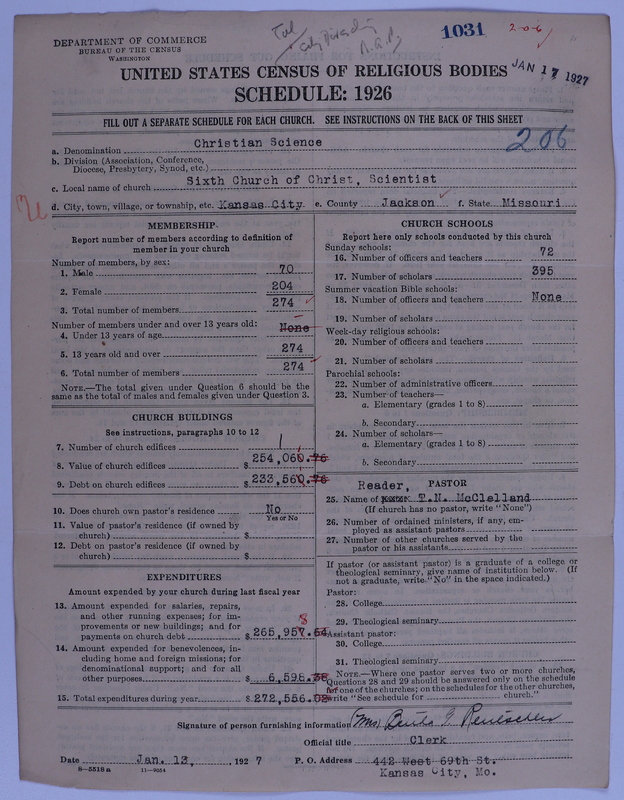 1031
206
JAN 17 1927
DEPARTMENT OF COMMERCE
BUREAU OF THE CENSUS
WASHINGTON
UNITED STATES CENSUS OF RELIGIOUS BODIES
SCHEDULE: 1926
FILL OUT A SEPARATE SCHEDULE FOR EACH CHURCH. SEE INSTRUCTIONS ON THE BACK OF THIS SHEET
206
a. Denomination Christian Science
b. Division (Association, Conference,
Diocese, Presbytery, Synod, etc.)
c. Local name of church Sixth Church of Christ, Scientist
d. City, town, village, or township, etc. Kansas City. e. County Jackson f. State Missouri
MEMBERSHIP
Report number of members according to definition of
member in your church
Number of members, by sex:
1. Male 70
2. Female 204
3. Total number of members 274
Number of members under and over 13 years old:
4. Under 13 years of age None
5. 13 years old and over 274
6. Total number of members 274
NOTE.—The total given under Question 6 should be the
same as the total of males and females given under Question 3.
CHURCH BUILDINGS
See instructions, paragraphs 10 to 12
7. Number of church edifices 1
8. Value of church edifices $ 254,060.76
9. Debt on church edifices $ 233,560.76
10. Does church own pastor's residence No
Yes or No
11. Value of pastor's residence (if owned by
church) $
12. Debt on pastor's residence (if owned by
church) $
EXPENDITURES
Amount expended by your church during last fiscal year
13. Amount expended for salaries, repairs,
and other running expenses; for im-
provements or new buildings; and for
payments on church debt $ 265,957.64
8
14. Amount expended for benevolences, in-
cluding home and foreign missions; for
denominational support; and for all
other purposes $ 6,598.38
15. Total expenditures during year $ 272,556.02
CHURCH SCHOOLS
Report here only schools conducted by this church
Sunday schools:
16. Number of officers and teachers 72
17. Number of scholars 395
Summer vacation Bible schools:
18. Number of officers and teachers None
19. Number of scholars
Week-day religious schools:
20. Number of officers and teachers
21. Number of scholars
Parochial schools:
22. Number of administrative officers
23. Number of teachers—
a. Elementary (grades 1 to 8)
b. Secondary
24. Number of scholars—
a. Elementary (grades 1 to 8)
b. Secondary
Reader, PASTOR
25. Name of T.N. McClelland
(If church has no pastor, write "None")
26. Number of ordained ministers, if any, em-
ployed as assistant pastors
27. Number of other churches served by the
pastor or his assistants
If pastor (or assistant pastor) is a graduate of a college or
theological seminary, give name of institution below. (If
not a graduate, write "No" in the space indicated.)
Pastor:
28. College
29. Theological seminary
Assistant pastor:
30. College
31. Theological seminary
NOTE.—Where one pastor serves two or more churches,
Questions 28 and 29 should be answered only on the schedule
for one of the churches; on the schedules for the other churches,
write "See schedule for church."
Signature of person furnishing information (Mrs)
Official title Clerk
Date Jan. 13, 1927 P. O. Address 442 West 69th St.
Kansas City, Mo.
8—5518a 11—9054